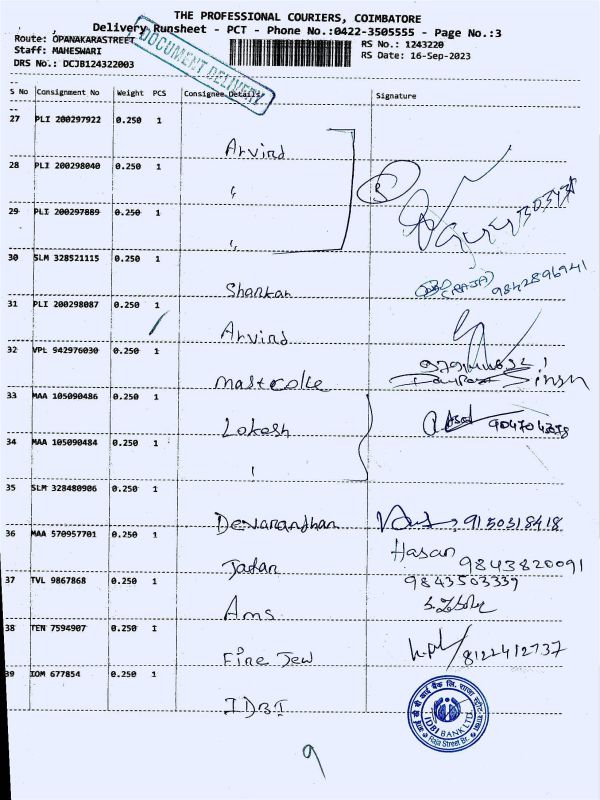 THE PROFESSIONAL COURIERS, COIMBATORE
Delivery Runsheet - PCT - Phone No.:0422-3505555 - Page No.:3
Route: OPANAKARASTREET RS No.: 1243220
Staff: MAHESWARI RS Date: 16-Sep-2023
DRS No.: DCJB124322003
DOCUMENT DELIVERY
S No Consignment No Weight PCS Consignee Details Signature
27 PLI 200297922 0.250 1
Arvind
28 PLI 200298040 0.250 1
29 PLI 200297889 0.250 1
30 SLM 328521115 0.250 1
Shankar (RAJA) 9842896941
31 PLI 200298087 0.250 1
Arvind
32 VPL 942976030 0.250 1
Singh
33 MAA 105090486 0.250 1
Lokesh
34 MAA 105090484 0.250 1
35 SLM 328480906 0.250 1
Devanandhan 9150318418
36 MAA 570957701 0.250 1
Hasan
9843820091
37 TVL 9867868 0.250 1 9843503339
Ams
38 TEN 7594907 0.250 1
Fine Jew 8122412737
39 IOM 677854 0.250 1
IDBI
IDBI BANK LTD.
Raja Street Br.
9